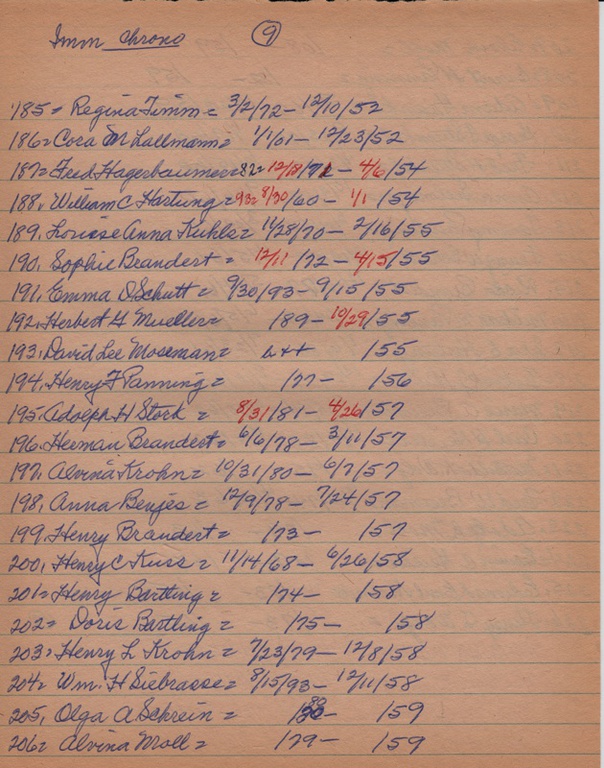 Imm Chrono 9
185= Regina Timm = 3/2/72 - 12/10/52
186= Cora M Lallmann = 1/1/61 - 12/23/52
187= Fred Hagerbaumer = 82= 12/18/71 - 4/6/54
188, William C Hartung = 93= 8/30/60 - 1/1/54
189, Louise Anna Kuhls = 11/28/70 - 2/16/55
190, Sophie Brandert = 12/11/72 - 4/15/55
191, Emma D Schutt = 9/30/93 - 9/15/55
192, Herbert G Mueller = 189 - 10/29/55
193, David Lee Moseman = /55
194, Henry F Panning = /77 - /56
195, Adolph H Stork = 8/31/81 - 4/26/57
196, Herman Brandert = 6/6/78 - 3/11/57
197, Alvina Krohn = 10/31/80 - 6/7/57
198, Anna Benjes = 12/9/78 - 7/24/57
199, Henry Brandert = /73 - /57
200, Henry C Kuss = 11/14/68 - 6/26/58
201= Henry Bartling = /74 - /58
202= Doris Bartling = /75 - /58
203= Henry L Krohn = 7/23/79 - 12/8/58
204= Wm. H Siebrasse = 8/15/93 - 12/11/58
205, Olga A Schrein = - /59
206= Alvina Moll = /79 - /59